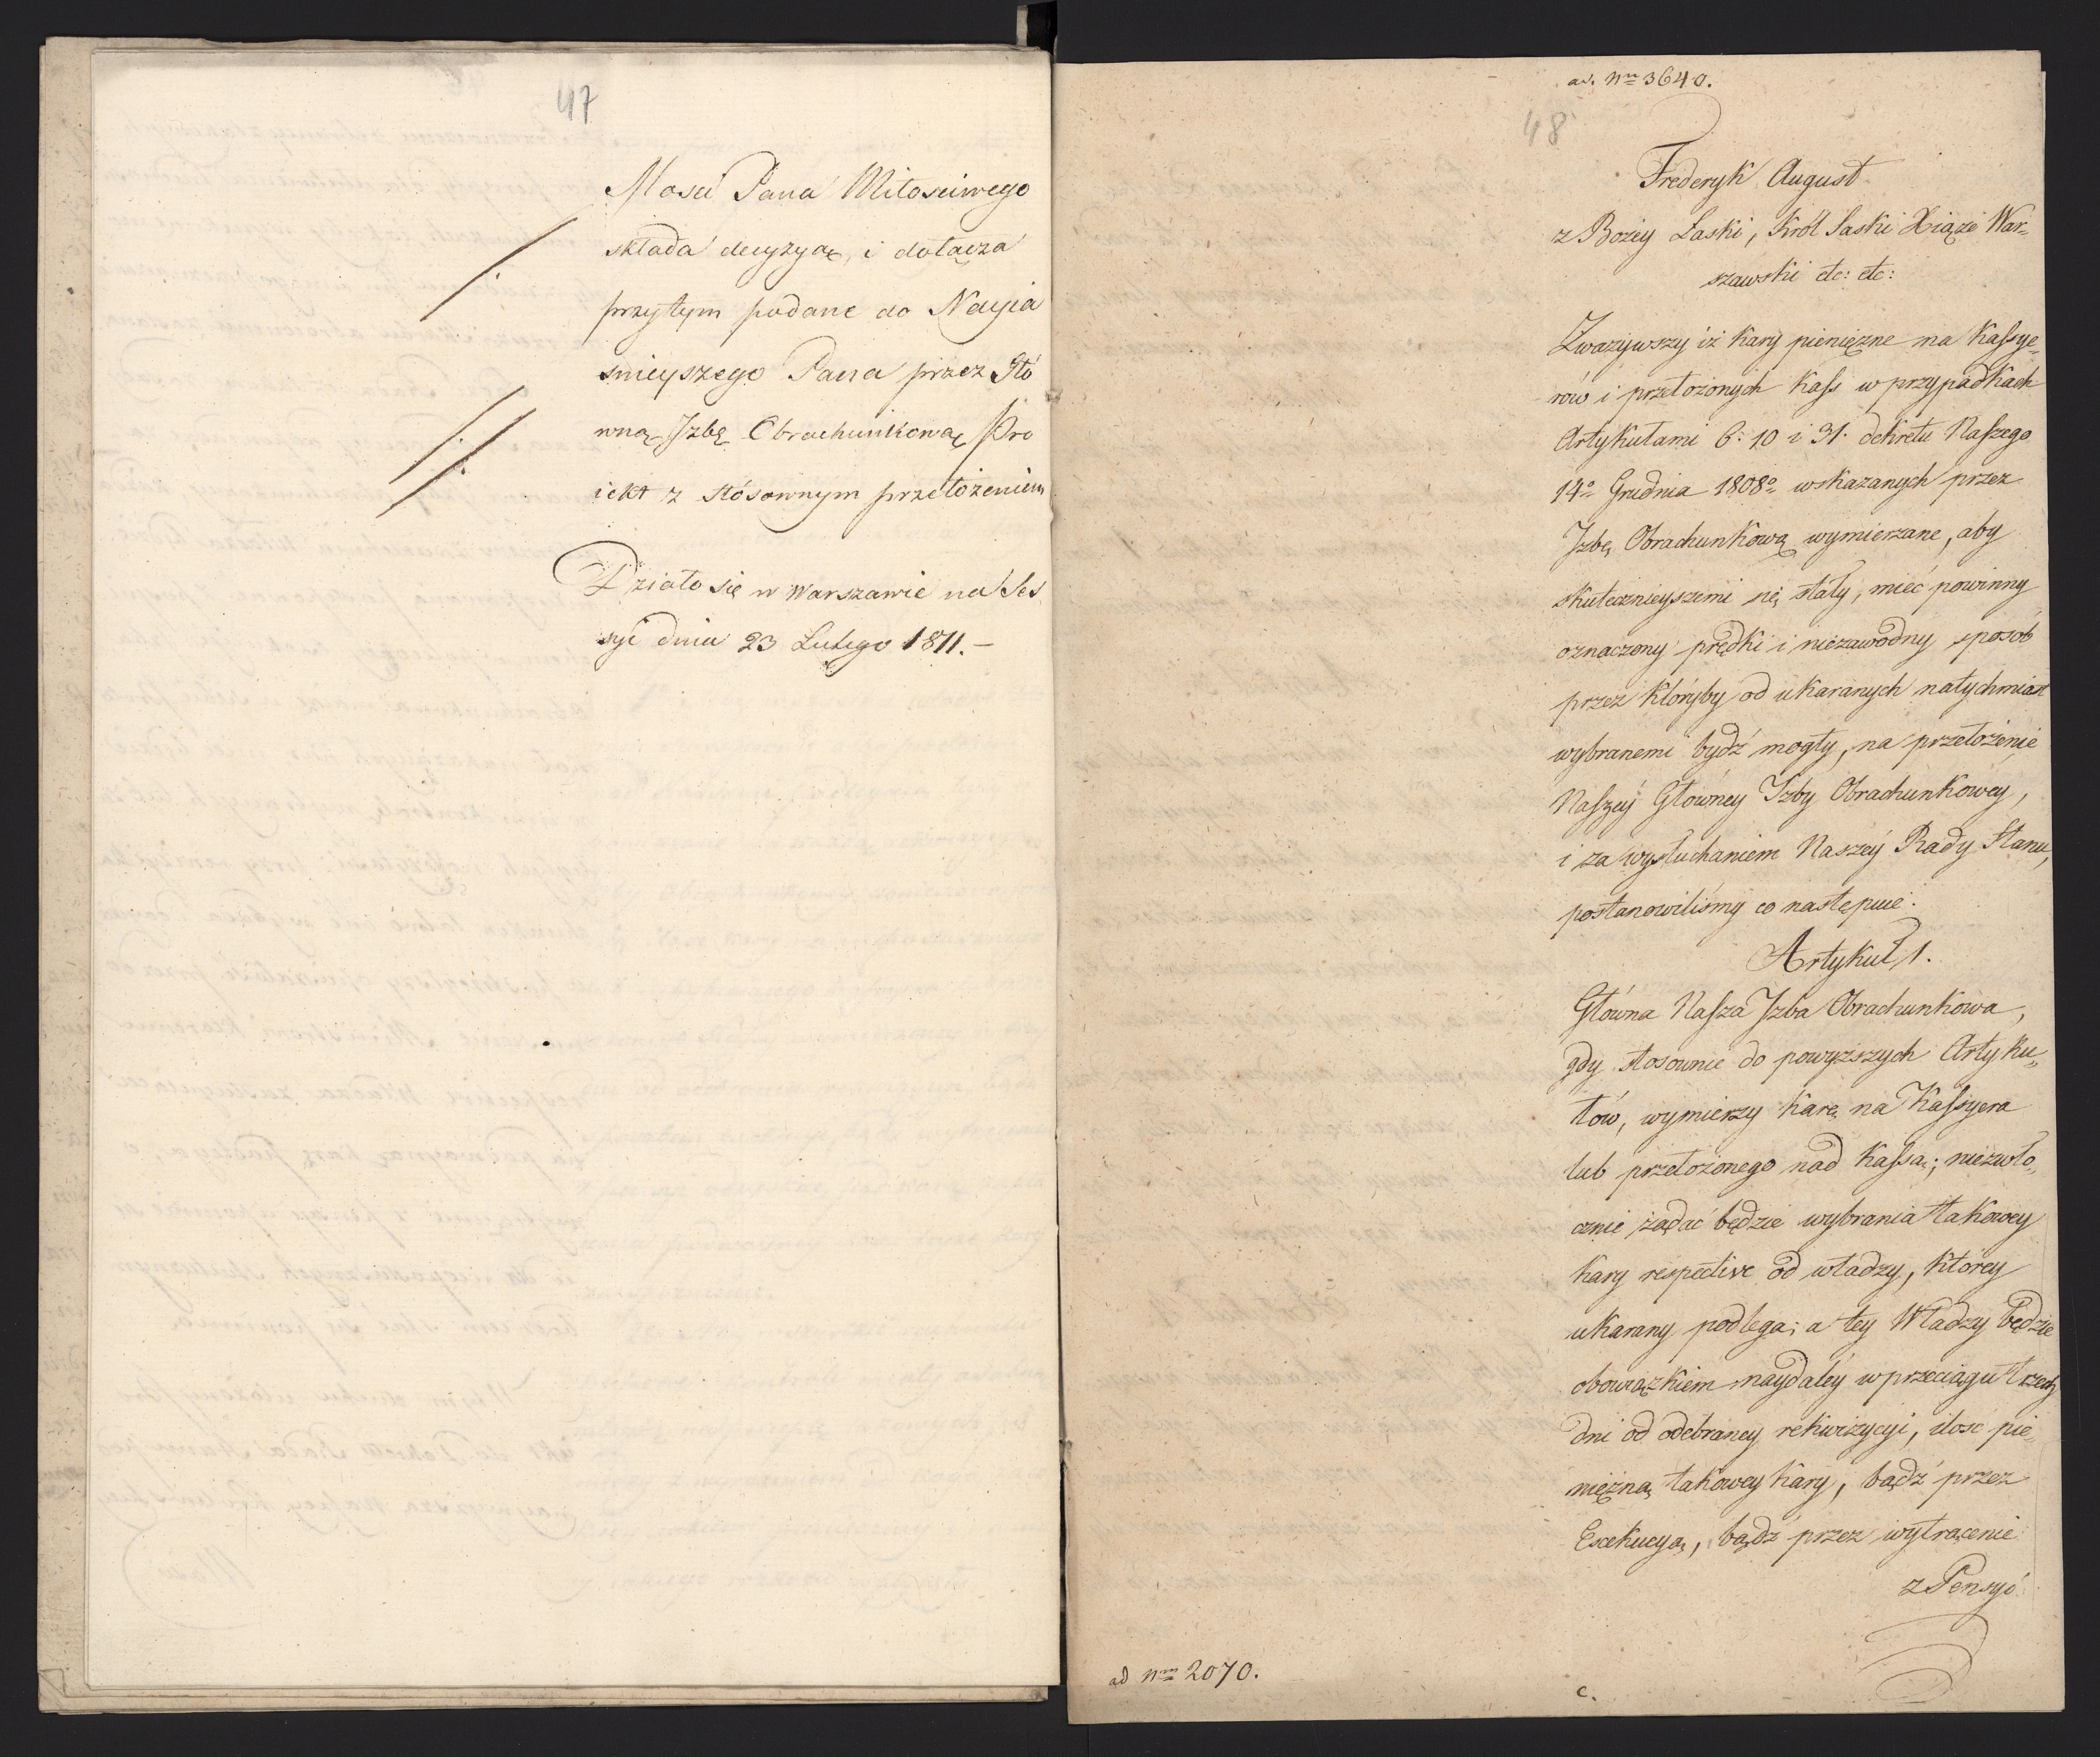 47
Mosci Pana Miłościwego
składa decyzyą, i dołącza
przytym podane do Nayia
śnieyszego Pana przez Głó
wną Izbę Obrachunkową Pro
iekt z stósownym przełożeniem
Działo się w Warszawie na Ses
syi dnia 23 Lutego 1811. –
ad. Nrm 3640.
48
Frederyk August
z Bożéy Łaski, Król Saski Xiąże War=
szawski etc: etc:
Zważywszy iż kary pieniężne na Kassye=
rów i przełożonych Kass w przypadkach
Artykułami 6: 10 i 31. dekretu Naszego
14o Grudnia 1808o wskazanych przez
Izbę Obrachunkową wymierzane, aby
skutecznieyszemi się stały, mieć powinny
oznaczony prędki i niezawodny sposób
przez któryby od ukaranych natychmiast
wybranemi bydź mogły, na przełożenie
Naszéy Głównéy Izby Obrachunkowey,
i za wysłuchaniem Naszéy Rady Stanu,
postanowiliśmy co następuie:
Artykuł 1.
Główna Nasza Izba Obrachunkowa,
gdy stosownie do powyższych Artyku=
łów, wymierzy karę na Kassyera
lub przełożonego nad Kassą; niezwło=
cznie żądać będzie wybrania takowey
kary respective od władzy, którey
ukarany podlega; a tey Władzy będzie
obowiązkiem naydaléy w przeciągu trzech
dni od odebraney rekwizycyi, ilość pie=
niężną takowey kary, bądź przez
Exekucyą, bądź przez wytrącenie
z Pensyi
ad Nrm 2070.
c.